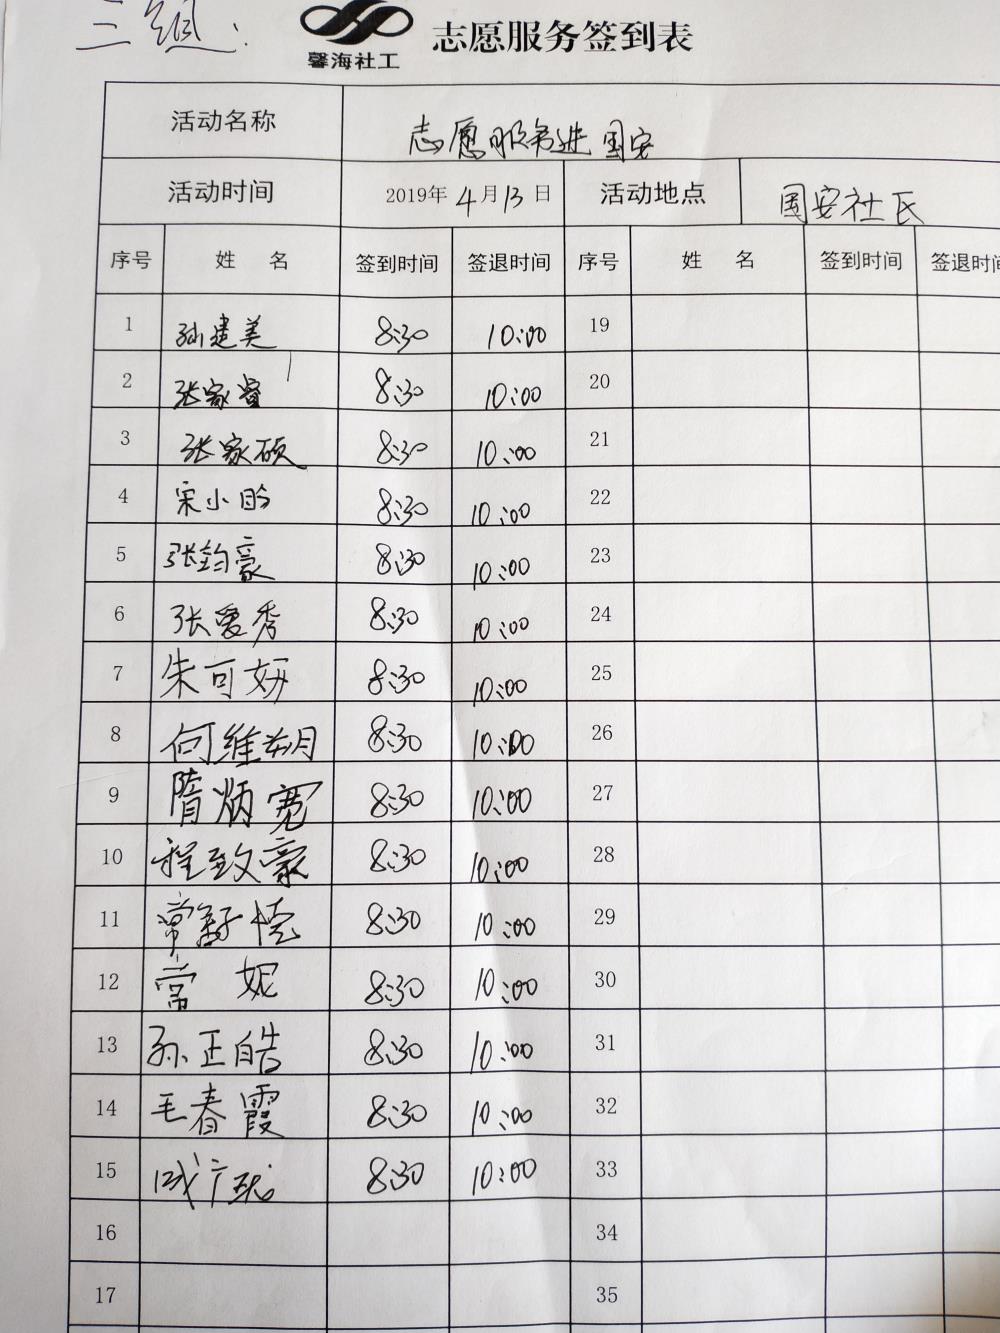 三组.
馨海社工
志愿服务签到表
活动名称 志愿服务进国安
活动时间 2019年4月13日 活动地点 国安社民
序号 姓 名 签到时间 签退时间 序号 姓 名 签到时间 签退时间
1 孙建美 8:30 10:00 19
2 张家睿 8:30 10:00 20
3 张家硕 8:30 10:00 21
4 宋小昤 8:30 10:00 22
5 张钧豪 8:30 10:00 23
6 张爱秀 8:30 10:00 24
7 朱可妍 8:30 10:00 25
8 何维朔 8:30 10:00 26
9 隋炳宽 8:30 10:00 27
10 程致豪 8:30 10:00 28
11 常 8:30 10:00 29
12 常 妮 8:30 10:00 30
13 孙正皓 8:30 10:00 31
14 毛春霞 8:30 10:00 32
15 8:30 10:00 33
16 34
17 35